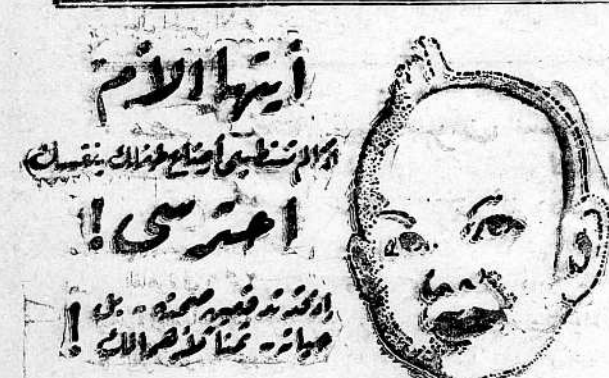 أيتها الأم
إذا لم تستطيعى إرضاع طفلك بنفسك
احترسى !
تدفعين صحته - بل
حياته - ثمناً لإهمالك !